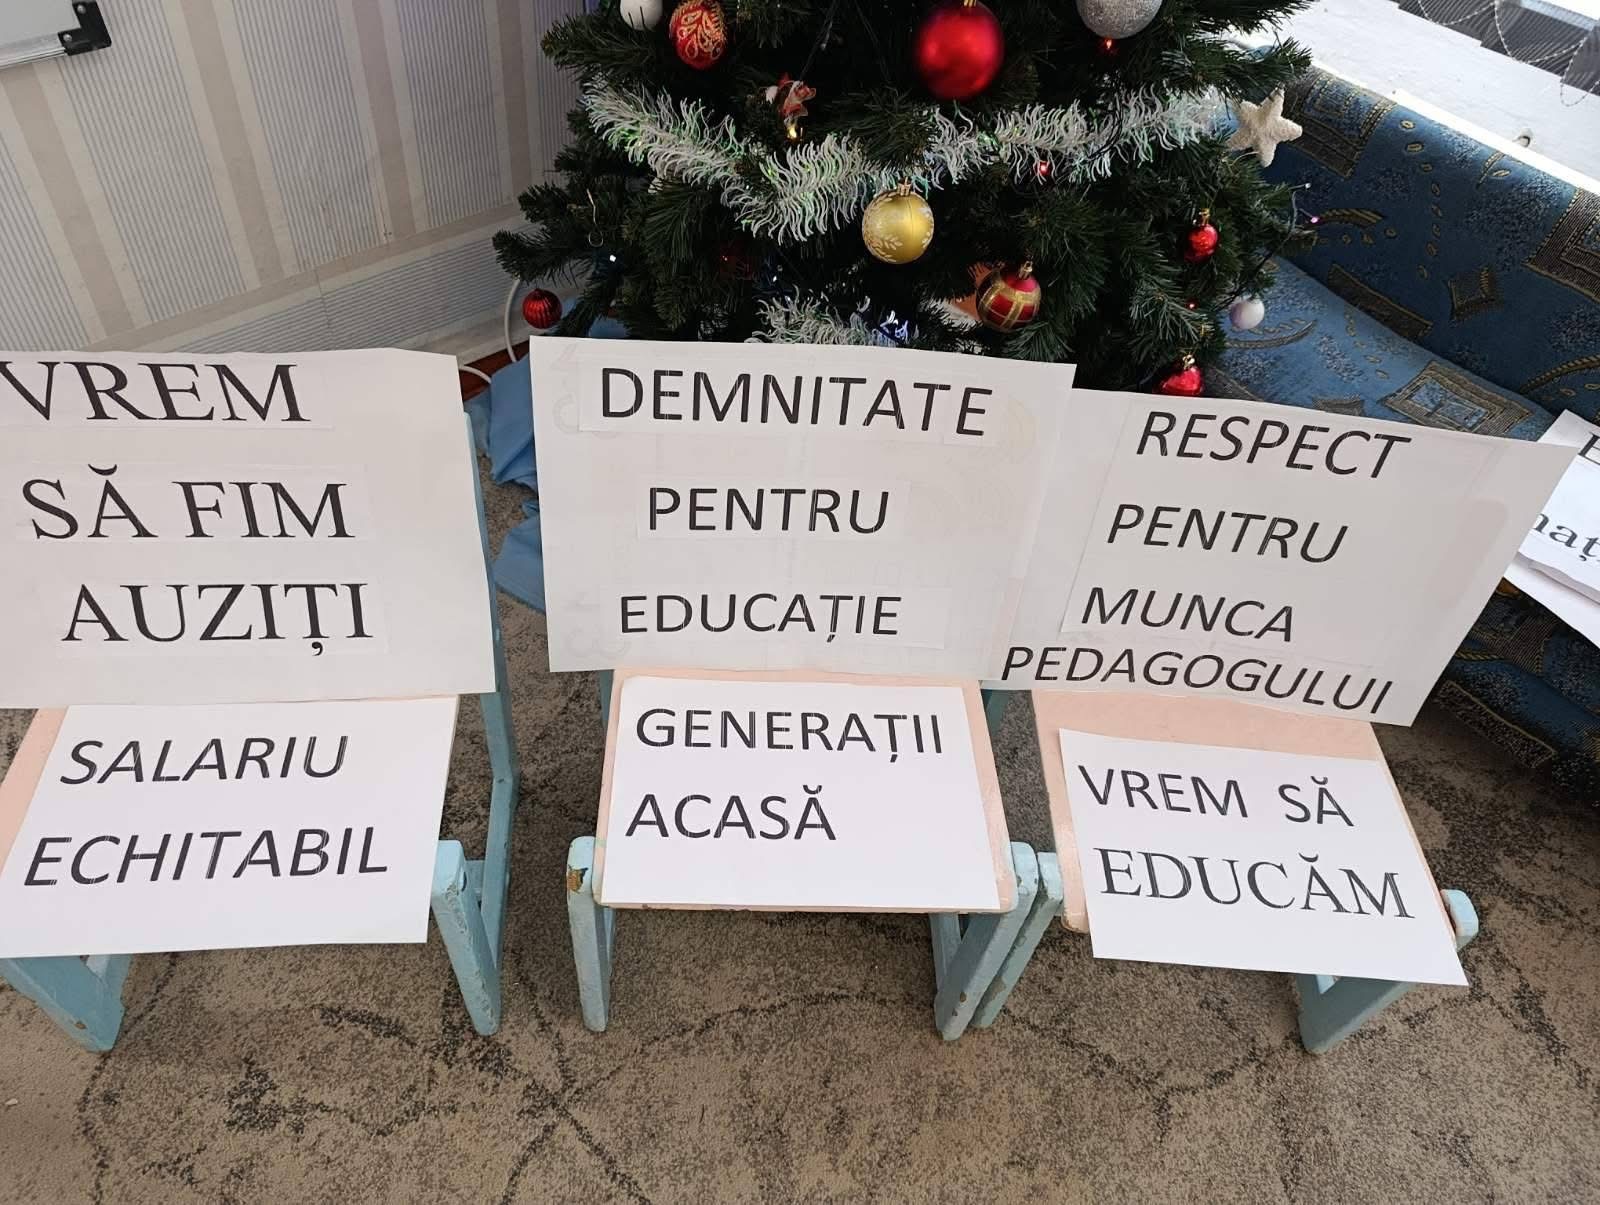 VREM
SĂ FIM
AUZIȚI
DEMNITATE
PENTRU
EDUCAȚIE
RESPECT
PENTRU
MUNCA
PEDAGOGULUI
SALARIU
ECHITABIL
GENERAȚII
ACASĂ
VREM SĂ
EDUCĂM